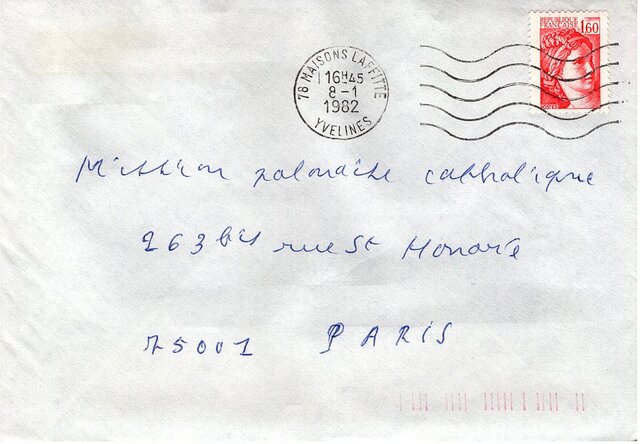 REPUBLIQUE
FRANÇAISE 1,60
78 MAISONS LAFFITTE
16H45
8-1
1982
YVELINES
Mission polonaise catholique
263 bis rue St Honoré
75001 PARIS